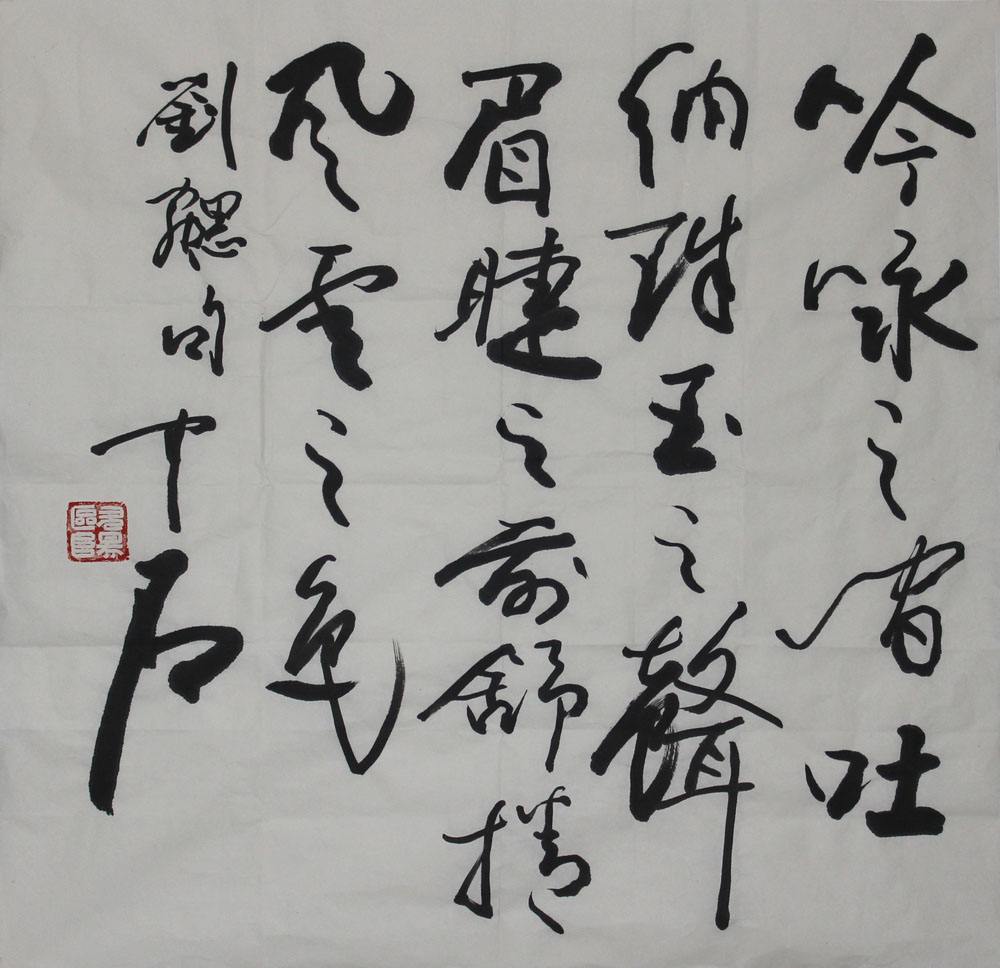 吟咏之间吐
纳珠玉之聲
眉睫之前舒捲
风雲之色
劉勰句 中石